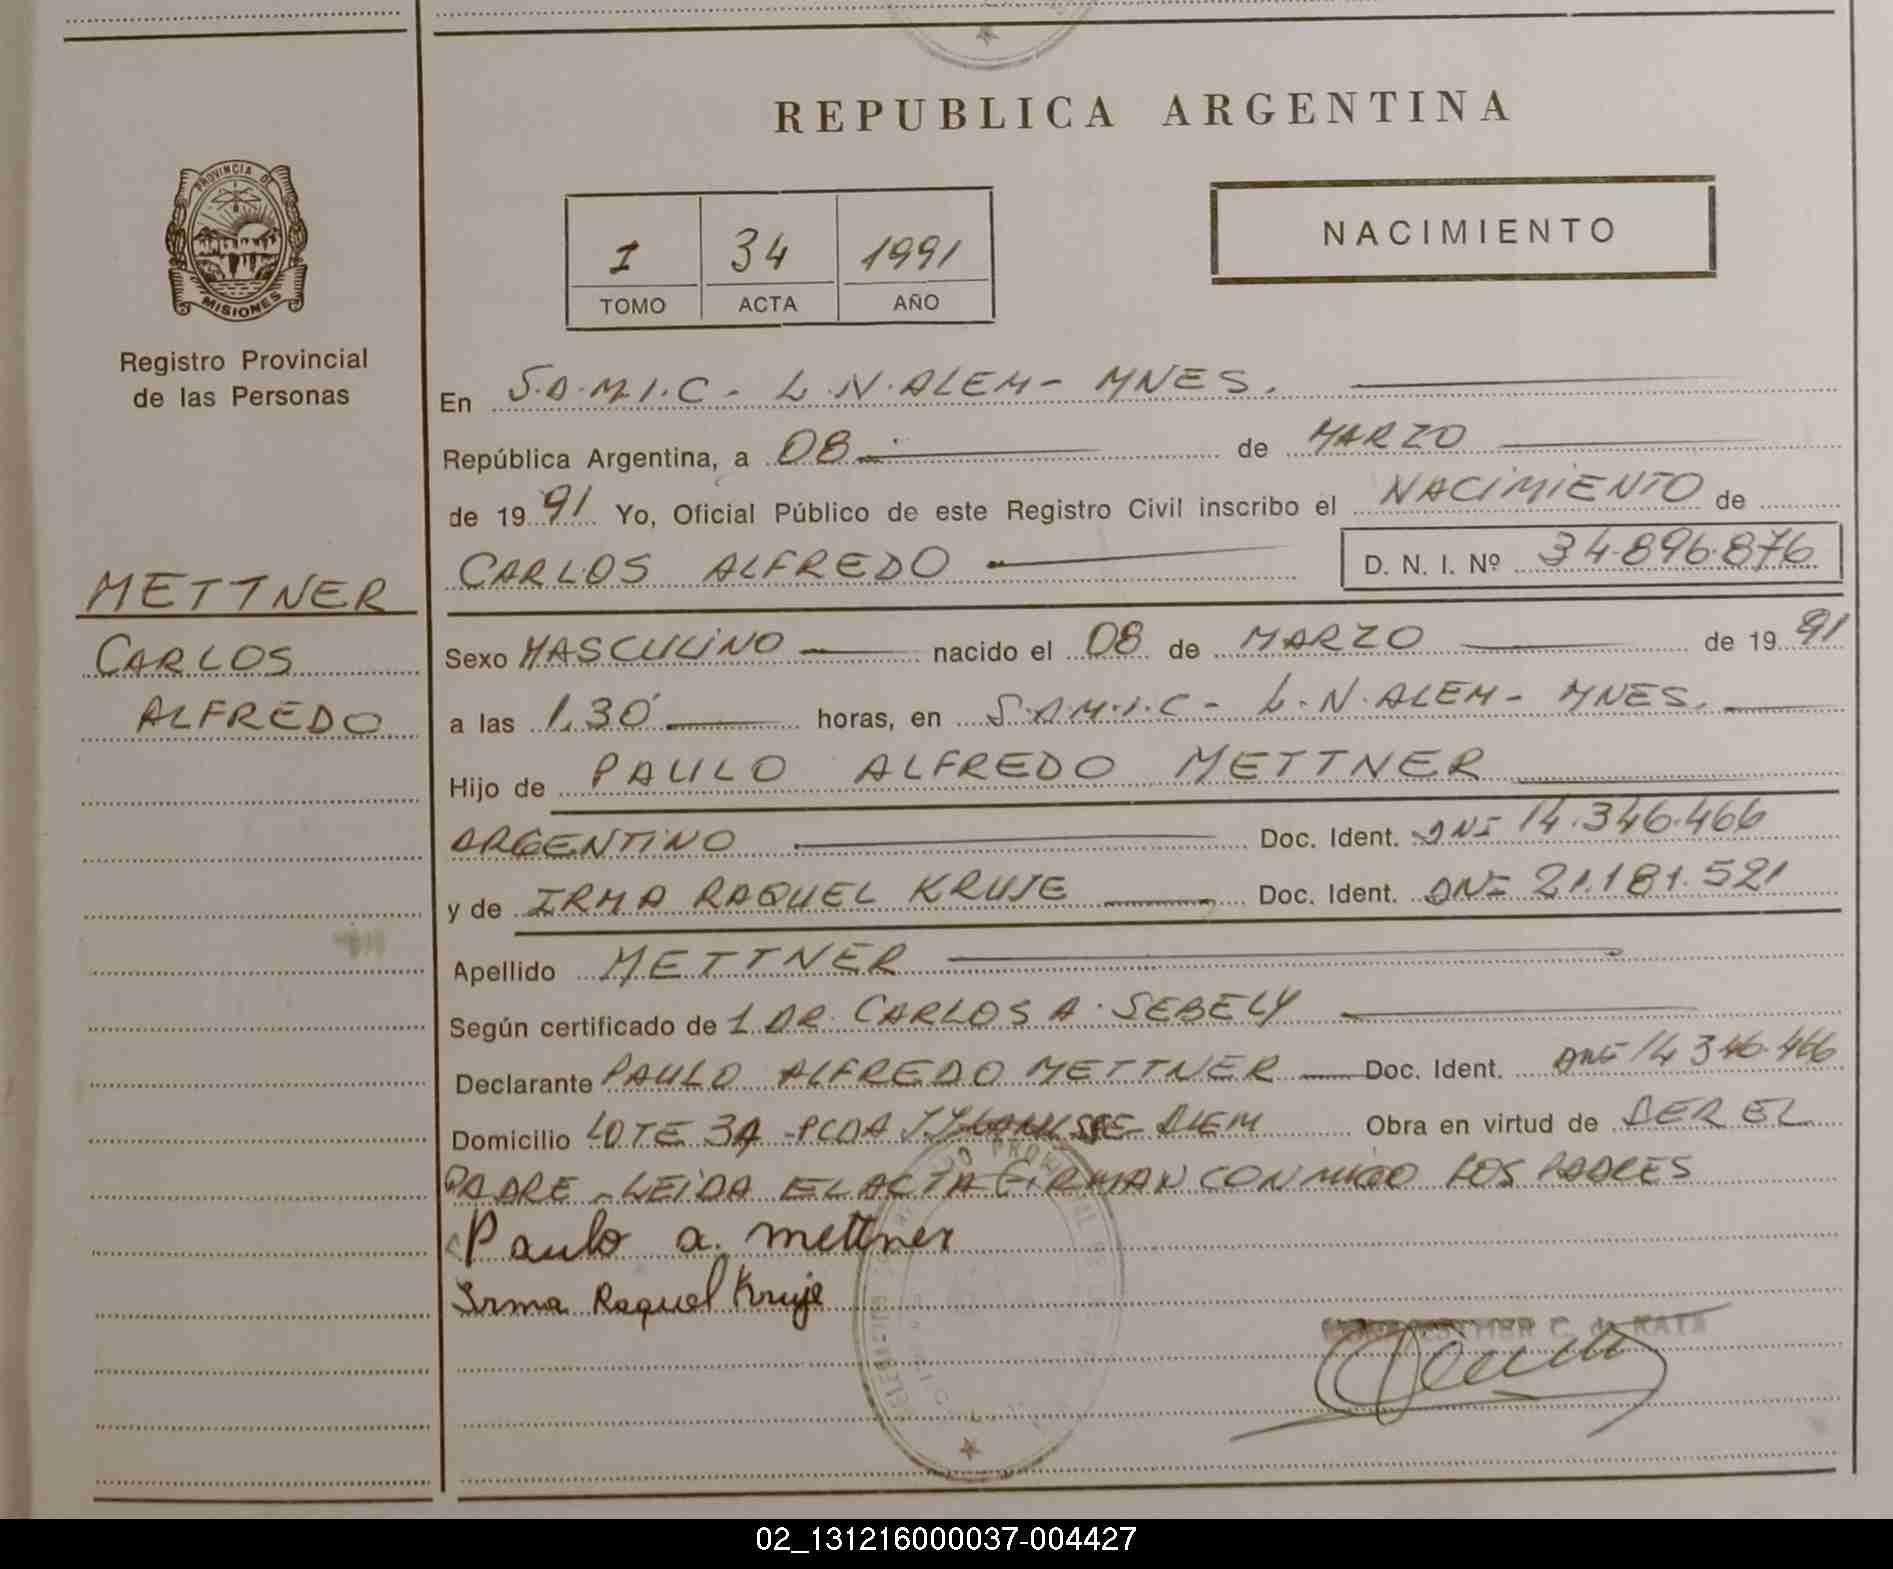 REPUBLICA ARGENTINA
PROVINCIA DE
MISIONES
Registro Provincial
de las Personas
I 34 1991
TOMO ACTA AÑO
NACIMIENTO
En S.A.M.I.C - L.N.ALEM - MNES.
República Argentina, a 08 de MARZO
de 1991 Yo, Oficial Público de este Registro Civil inscribo el NACIMIENTO de
CARLOS ALFREDO D. N. I. Nº 34.896.876
METTNER
CARLOS
ALFREDO
Sexo MASCULINO nacido el 08 de MARZO de 1991
a las 1,30 horas, en S.A.M.I.C - L.N.ALEM - MNES.
Hijo de PAULO ALFREDO METTNER
ARGENTINO Doc. Ident. DNI 14.346.466
y de IRMA RAQUEL KRUJE Doc. Ident. DNI 21.181.521
Apellido METTNER
Según certificado de 1 DR. CARLOS A. SEBELY
Declarante PAULO ALFREDO METTNER Doc. Ident. DNI 14.346.466
Domicilio LOTE 3A - PCDA ALEM Obra en virtud de SER EL
PADRE - LEIDA EL ACTA FIRMAN CONMIGO LOS PADRES
Paulo a. mettner
Irma Raquel Kruje
ESTHER C. de KATA
02_131216000037-004427